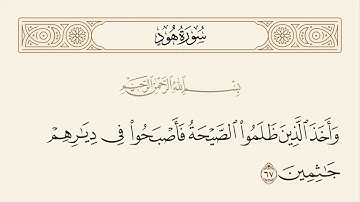 سُورَةُ هُودٍ
بِسْمِ ٱللَّهِ ٱلرَّحْمَٰنِ ٱلرَّحِيمِ
وَأَخَذَ ٱلَّذِينَ ظَلَمُوا۟ ٱلصَّيْحَةُ فَأَصْبَحُوا۟ فِى دِيَٰرِهِمْ
جَٰثِمِينَ ٦٧